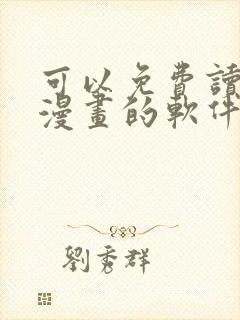 可以免費讀
漫畫的軟件
劉秀群